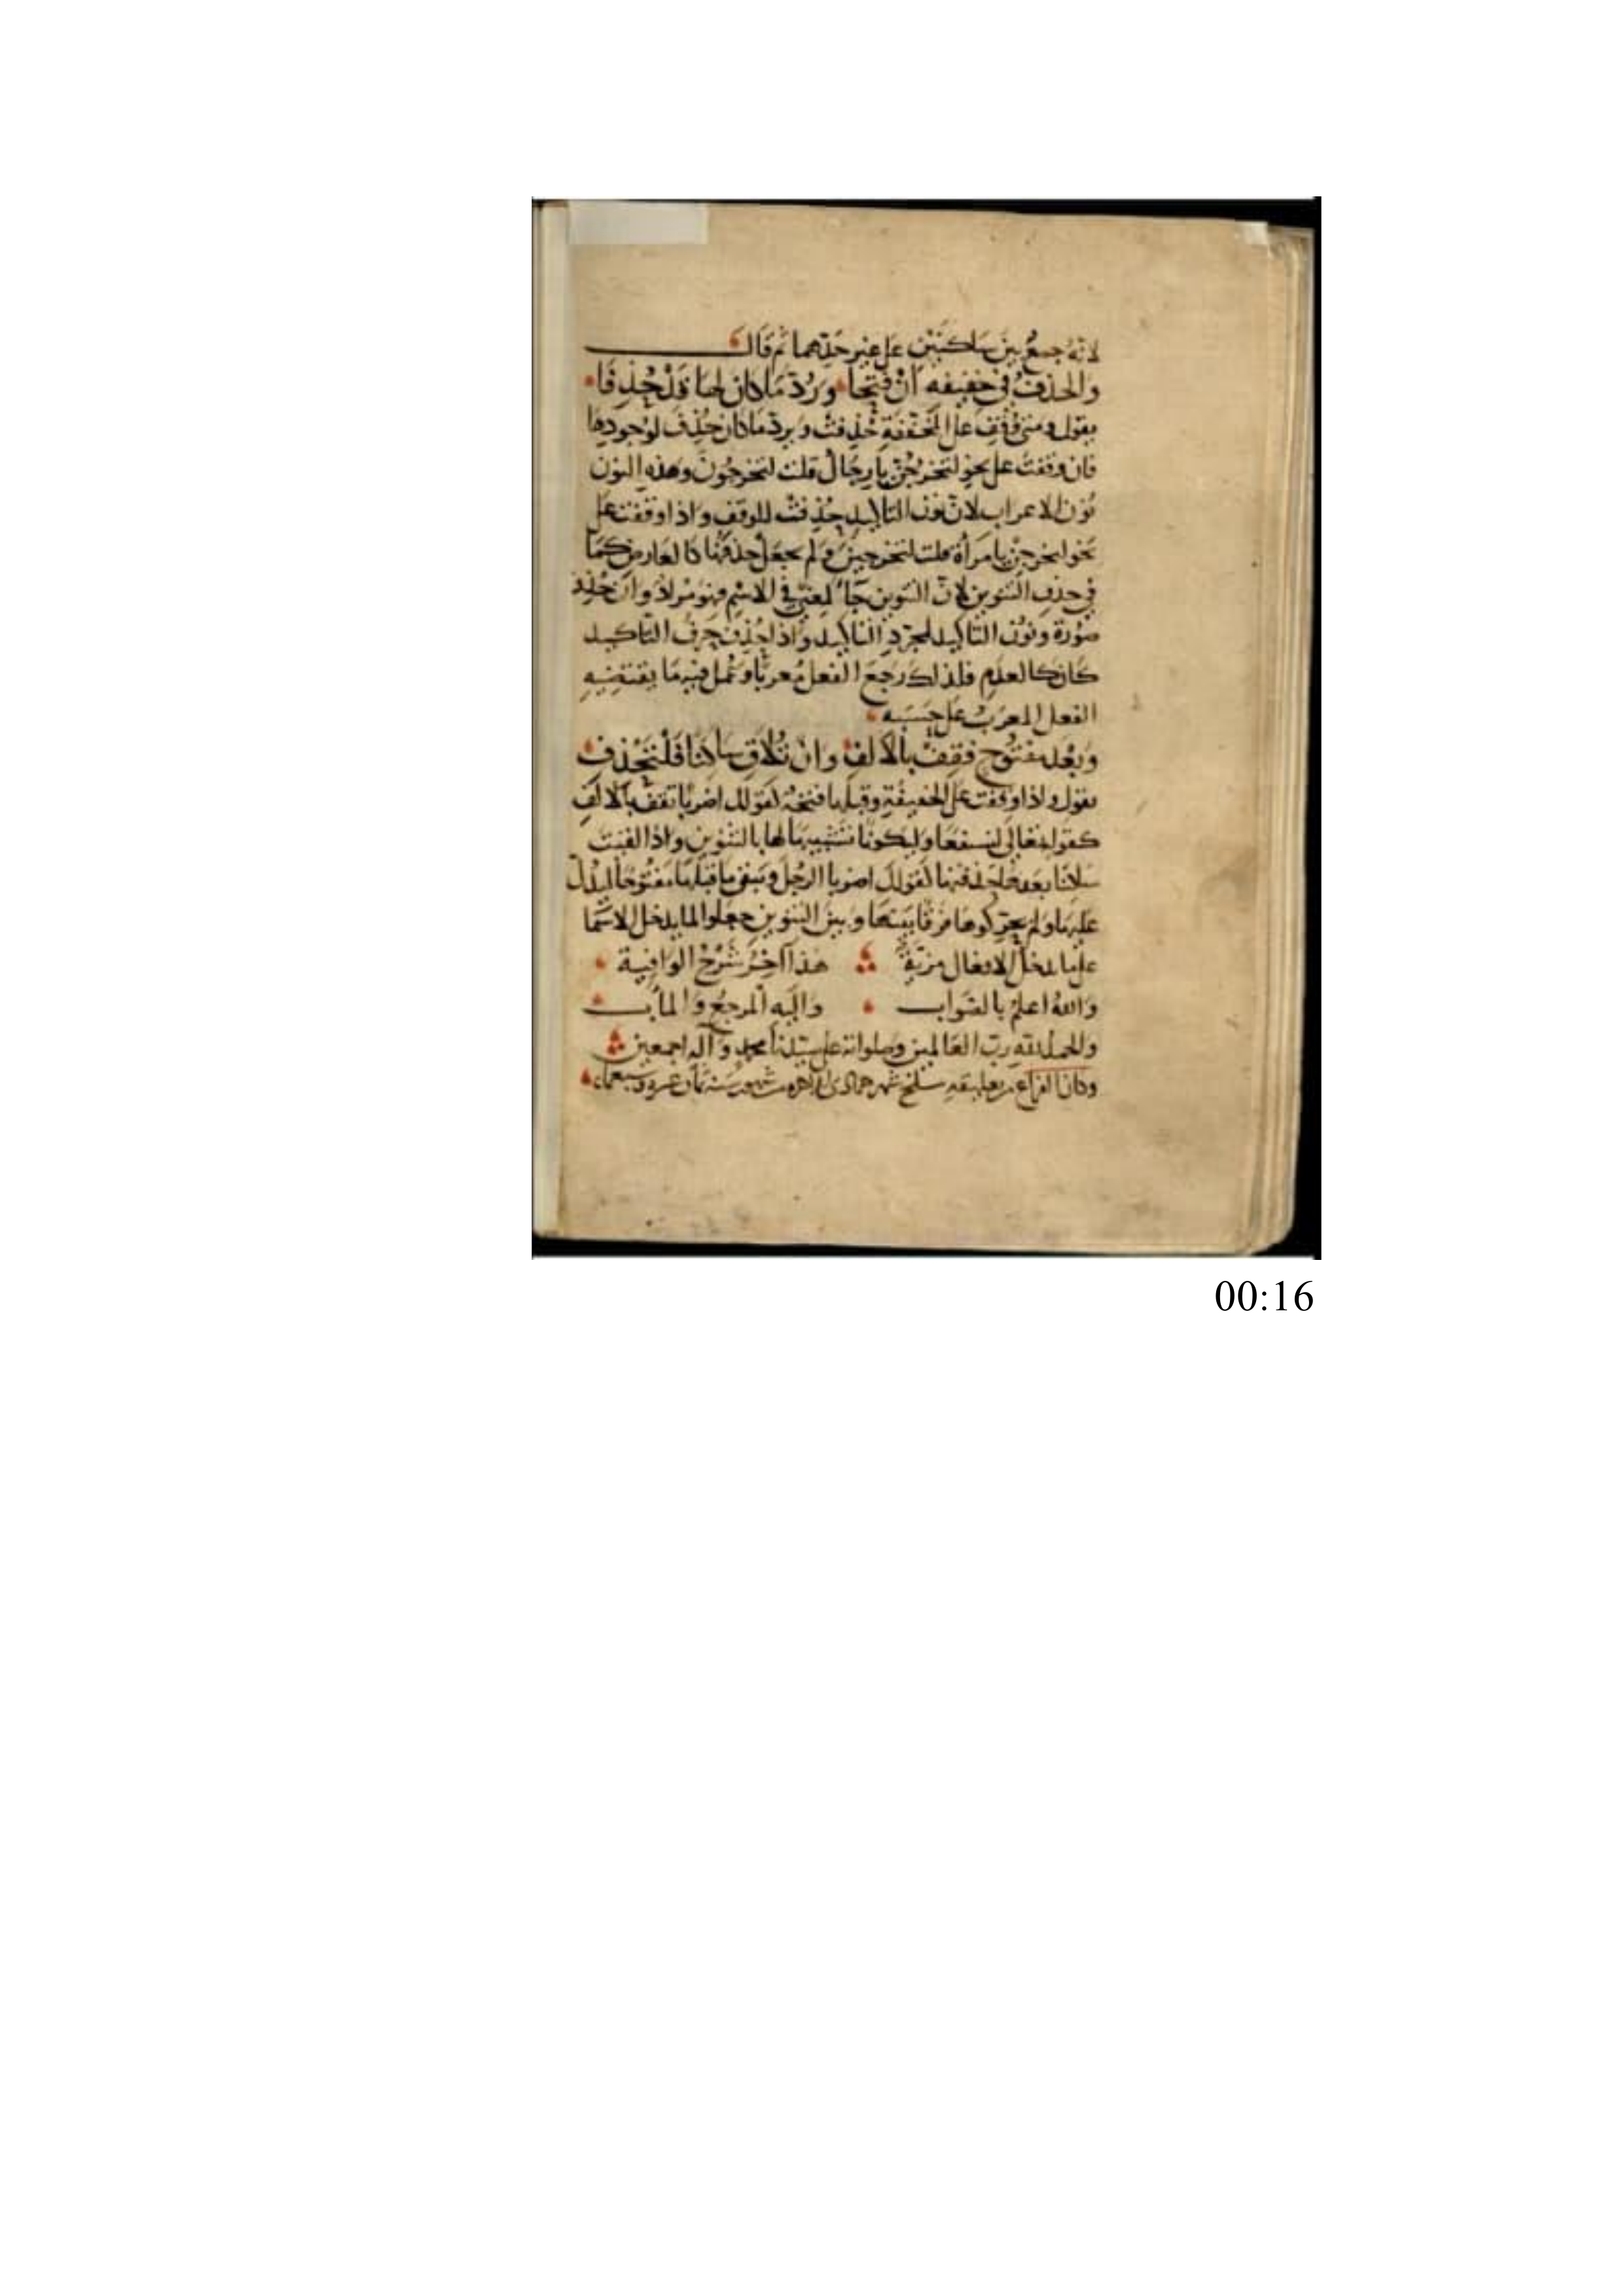 لانه جمع بين ساكنين على غير حدهما ثم قال
والحذف في خفيفه ان فتحا ورد ما كان لها قد حذفا
يقول ومتى وقف على المخففة حذفت ويرد ما كان حذف لوجودها
فان وقفت على نحو لتخرجن يا رجال قلت لتخرجون وهذه النون
نون الاعراب لان نون التاكيد حذفت للوقف واذا وقفت على
نحو لتخرجن يا مرأة قلت لتخرجين ولم يجعل حذفها كالعارض كما
في حذف التنوين لان التنوين جاء لمعنى في الاسم فهو مراد وان حذف
صورة ونون التاكيد لمجرد التاكيد واذا حذف حرف التاكيد
كان كالعدم فلذلك رجع الفعل معربا وعمل فيه ما يقتضيه
الفعل المعرب على حسبه
وبعد مفتوح فقف بالالف وان تلاق ساكنا فلتحذف
يقول واذا وقفت على الخفيفة وقبلها فتحة كقولك اضربا تقف بالالف
كقوله تعالى لنسفعا وليكونا تشبيها لها بالتنوين واذا لقيت
ساكنا بعدها حذفتها كقولك اضربا الرجل وتبقى ما قبلها مفتوحا ليدل
عليها ولم يحركوها فرقا بينها وبين التنوين جعلوا لما يدخل الاسما
على ما يدخل الافعال مزية هذا آخر شرح الوافية
والله اعلم بالصواب واليه المرجع والمآب
والحمد لله رب العالمين وصلواته على سيدنا محمد وآله اجمعين
وكان الفراغ من تعليقه سلخ شهر جمادى من شهور سنة ثمان عشر وسبعمائه
00:16